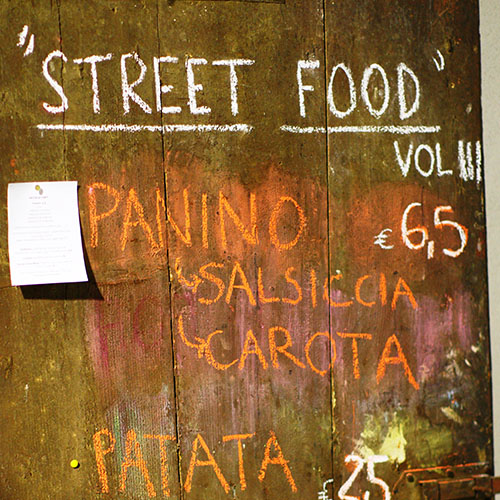 "STREET FOOD"
VOL III
PANINO €6,5
SALSICCIA
CAROTA
PATATA €25